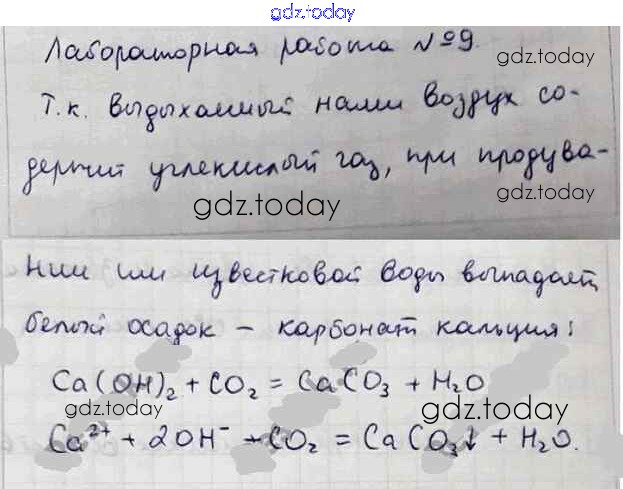 gdz.today
Лабораторная работа №9.
gdz.today
Т.к. выдыхаемый нами воздух со-
держит углекислый газ, при продува-
gdz.today
gdz.today
нии им известковой воды выпадает
белый осадок - карбонат кальция:
Ca(OH)₂ + CO₂ = CaCO₃ + H₂O
gdz.today
gdz.today
Ca²⁺ + 2OH⁻ + CO₂ = CaCO₃↓ + H₂O.